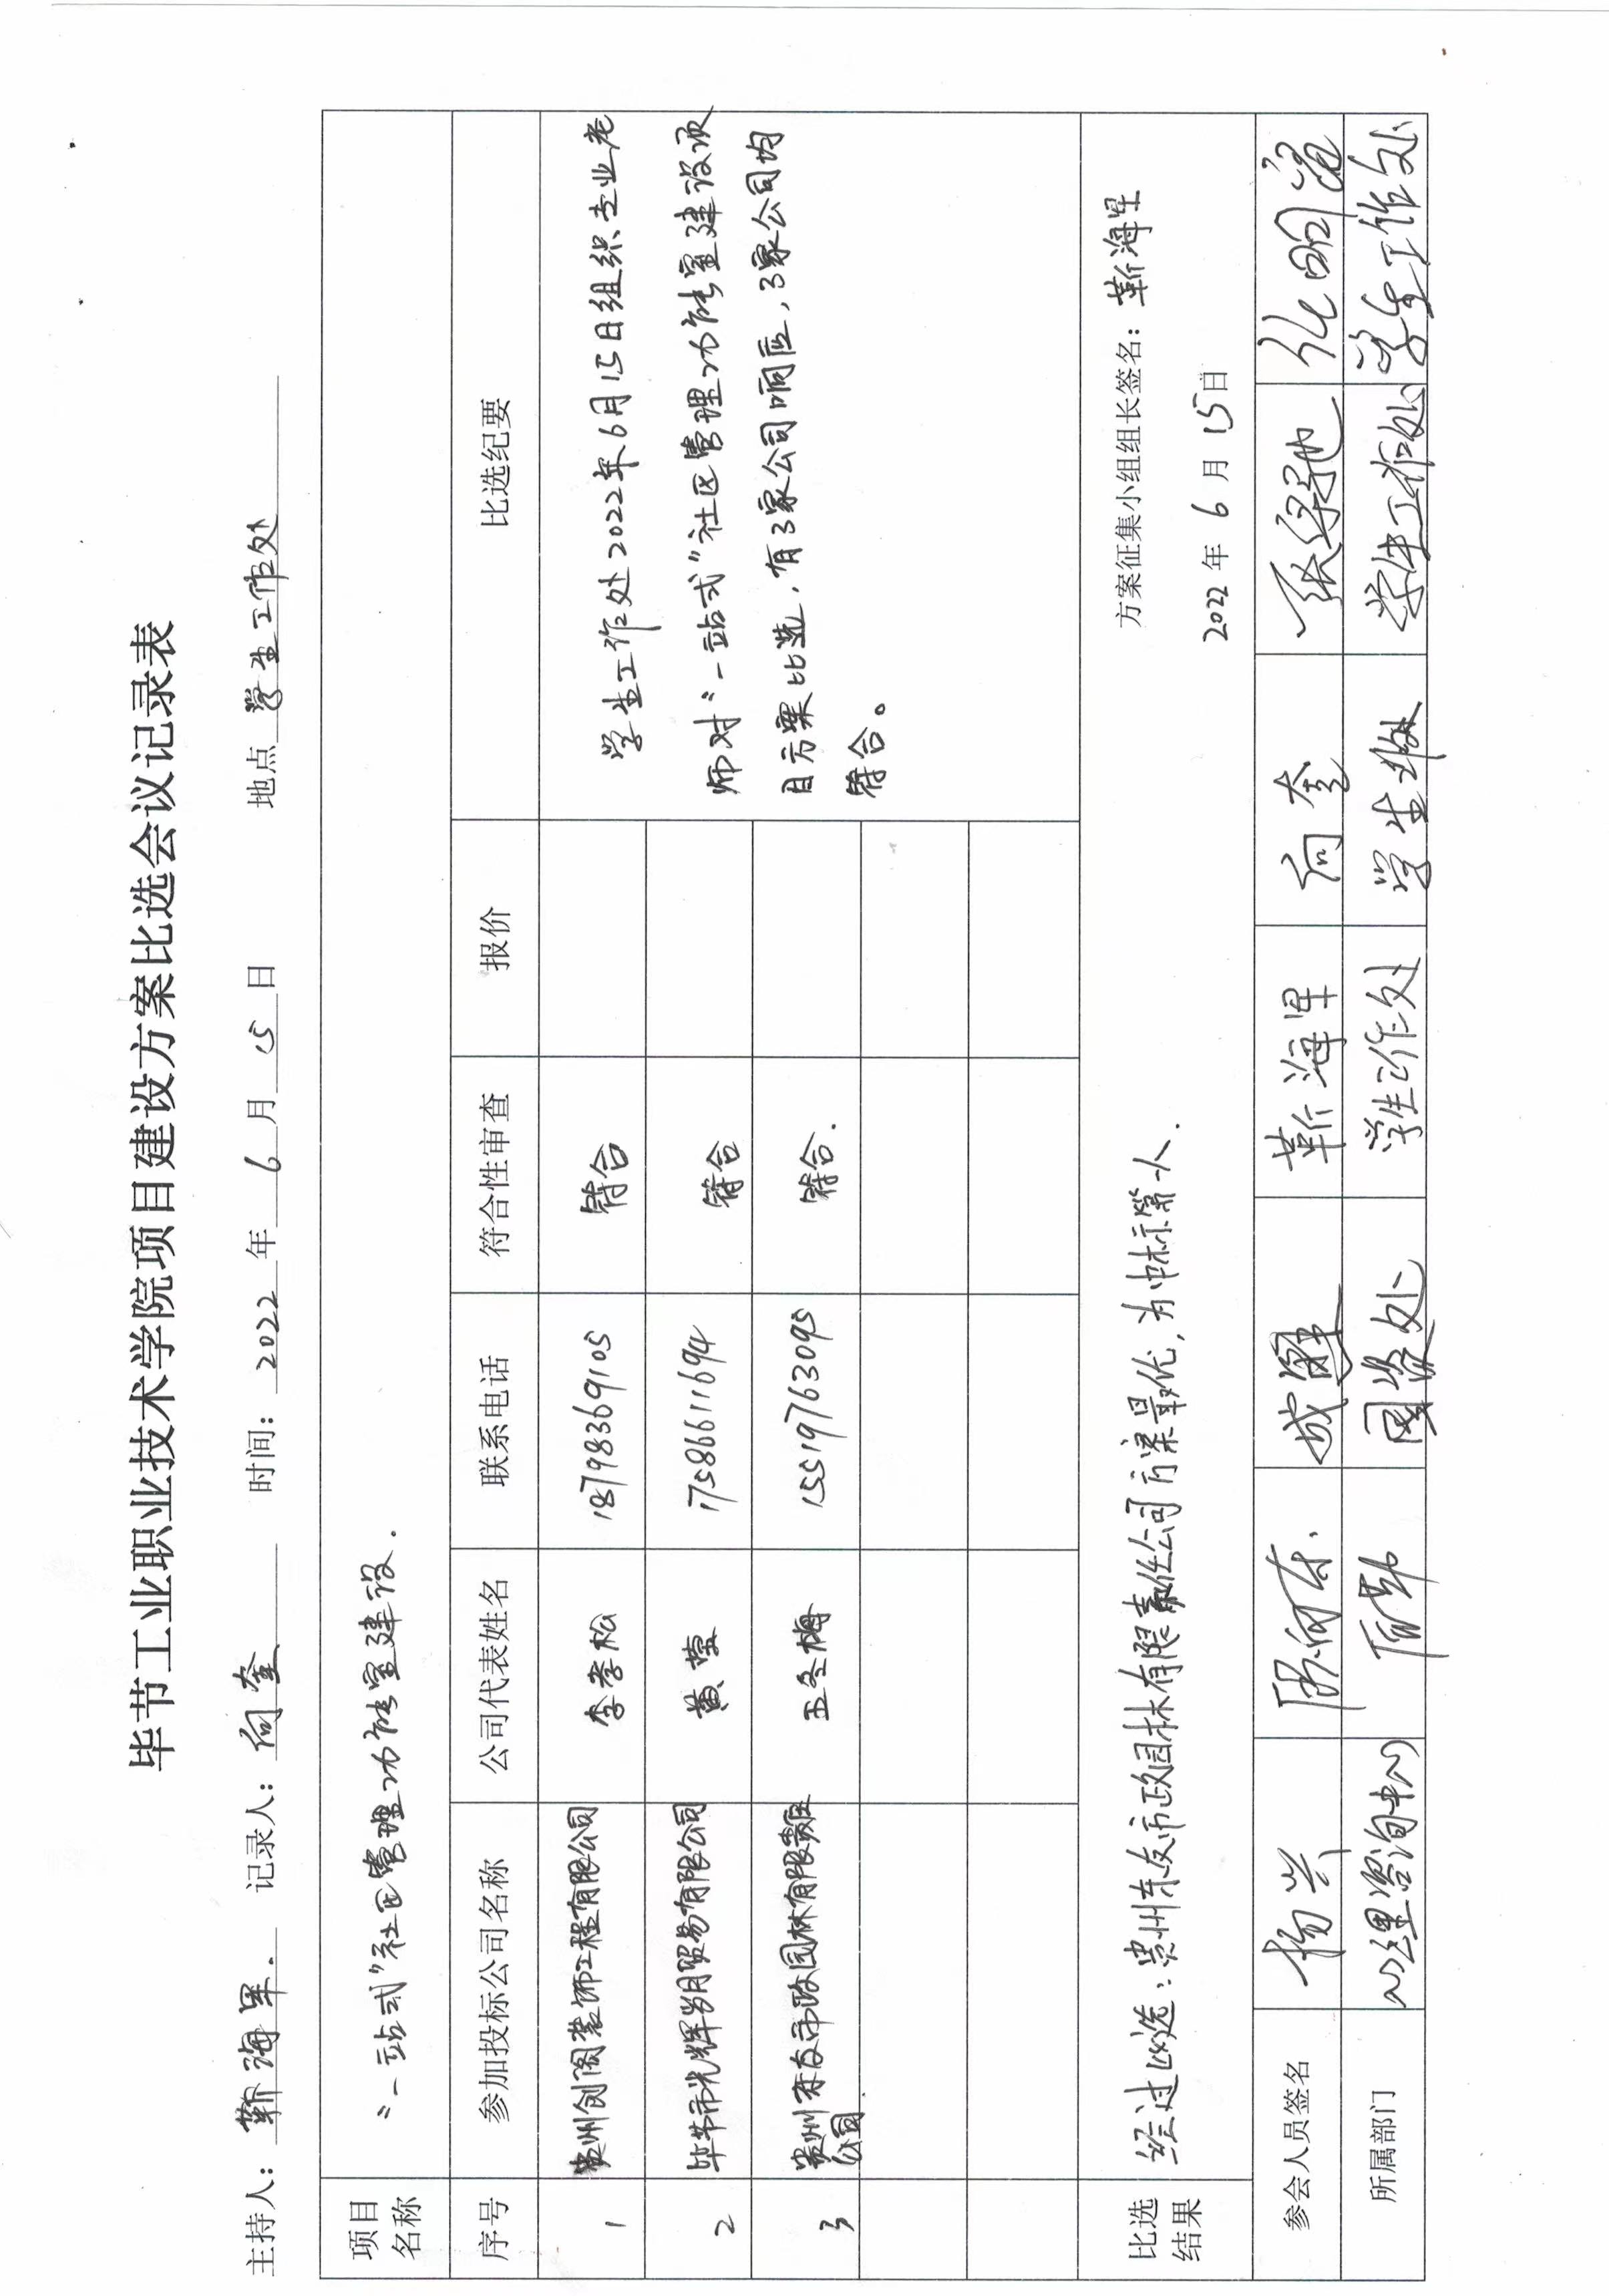 毕节工业职业技术学院项目建设方案比选会议记录表
主持人：靳海军. 记录人：向奎 时间：2022年6月15日 地点 学生工作处
项目名称 “一站式”社区管理功能室建设.
序号 参加投标公司名称 公司代表姓名 联系电话 符合性审查 报价 比选纪要
1 贵州创阁装饰工程有限公司 李孝松 18798369105 符合
2 毕节市光辉岁月贸易有限公司 黄莹 17586611694 符合
3 贵州东友市政园林有限责任公司 王冬梅 15519763095 符合.
学生工作处2022年6月15日组织专业老
师对“一站式”社区管理功能室建设项
目方案比选，有3家公司响应，3家公司均
符合。
比选结果 经过比选：贵州东友市政园林有限责任公司方案最优，为中标第一人.
方案征集小组组长签名：靳海军
2022年6月15日
参会人员签名 杨兴 靳海军 向奎
所属部门 心理咨询中心 后勤 国资处 学生工作处 学生处 学生工作处 学生工作处